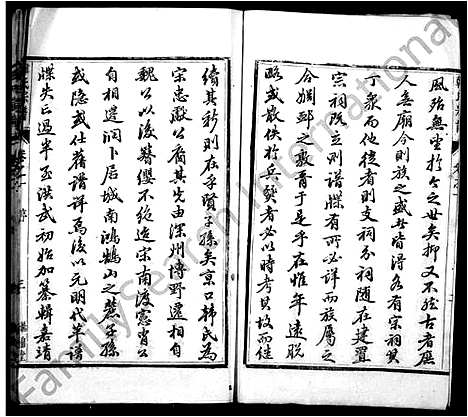 風殆無坐於今之世矣抑又不然古者庶
人無廟今則族之盛者皆得各有宗祠其
丁衆而他徙者則支祠分祠隨在建置
宗祠既立則譜牒有所必詳而族屬之
令嫺郅之教胥于是乎在惟年遠脱
略或散佚于兵燹者必以時考其故而佳
續其新則在孝賢子孫矣京口韓氏為
宋忠獻公裔其先由深州博野遷相自
魏公以後簪纓不絶迨宋南渡憲肖公
自相遷潤卜居城南鴻鶴山之麓子孫
或隱或仕舊譜詳焉後以元明代革譜
牒失亡過半至洪武初始加纂輯嘉靖
卷之一
序
三
FamilySearch International